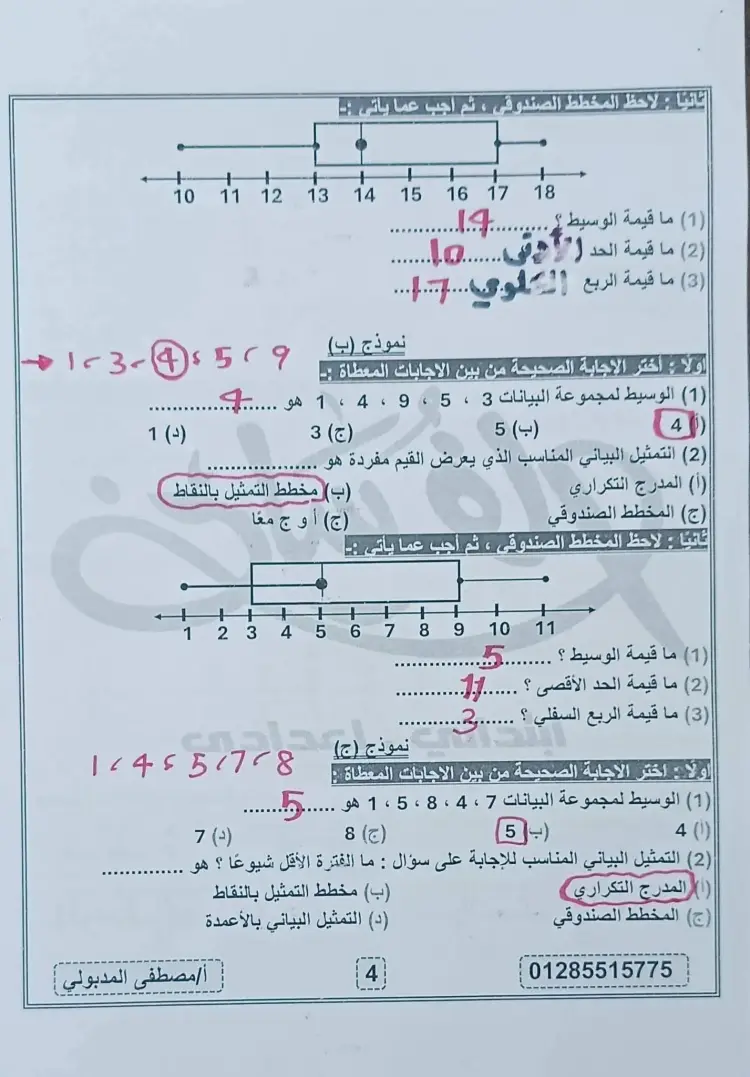 ثانيًا : لاحظ المخطط الصندوقي ، ثم أجب عما يأتي :-
10 11 12 13 14 15 16 17 18
(1) ما قيمة الوسيط ؟ 14
(2) ما قيمة الحد الأدنى 10
(3) ما قيمة الربع العلوي 17
نموذج (ب)
1 ، 3 ، 4 ، 5 ، 9
أولًا : أختر الإجابة الصحيحة من بين الإجابات المعطاة :-
(1) الوسيط لمجموعة البيانات 3 ، 5 ، 9 ، 4 ، 1 هو 4
(أ) 4 (ب) 5 (ج) 3 (د) 1
(2) التمثيل البياني المناسب الذي يعرض القيم مفردة هو ..................
(أ) المدرج التكراري (ب) مخطط التمثيل بالنقاط
(ج) المخطط الصندوقي (ج) أ و ج معًا
ثانيًا : لاحظ المخطط الصندوقي ، ثم أجب عما يأتي :-
1 2 3 4 5 6 7 8 9 10 11
(1) ما قيمة الوسيط ؟ 5
(2) ما قيمة الحد الأقصى ؟ 11
(3) ما قيمة الربع السفلي ؟ 3
نموذج (ج)
1 ، 4 ، 5 ، 7 ، 8
أولًا : اختر الإجابة الصحيحة من بين الإجابات المعطاة :
(1) الوسيط لمجموعة البيانات 7 ، 4 ، 8 ، 5 ، 1 هو 5
(أ) 4 (ب) 5 (ج) 8 (د) 7
(2) التمثيل البياني المناسب للإجابة على سؤال : ما الفترة الأقل شيوعًا ؟ هو ..............
(أ) المدرج التكراري (ب) مخطط التمثيل بالنقاط
(ج) المخطط الصندوقي (د) التمثيل البياني بالأعمدة
01285515775 4 أ/مصطفى المدبولي